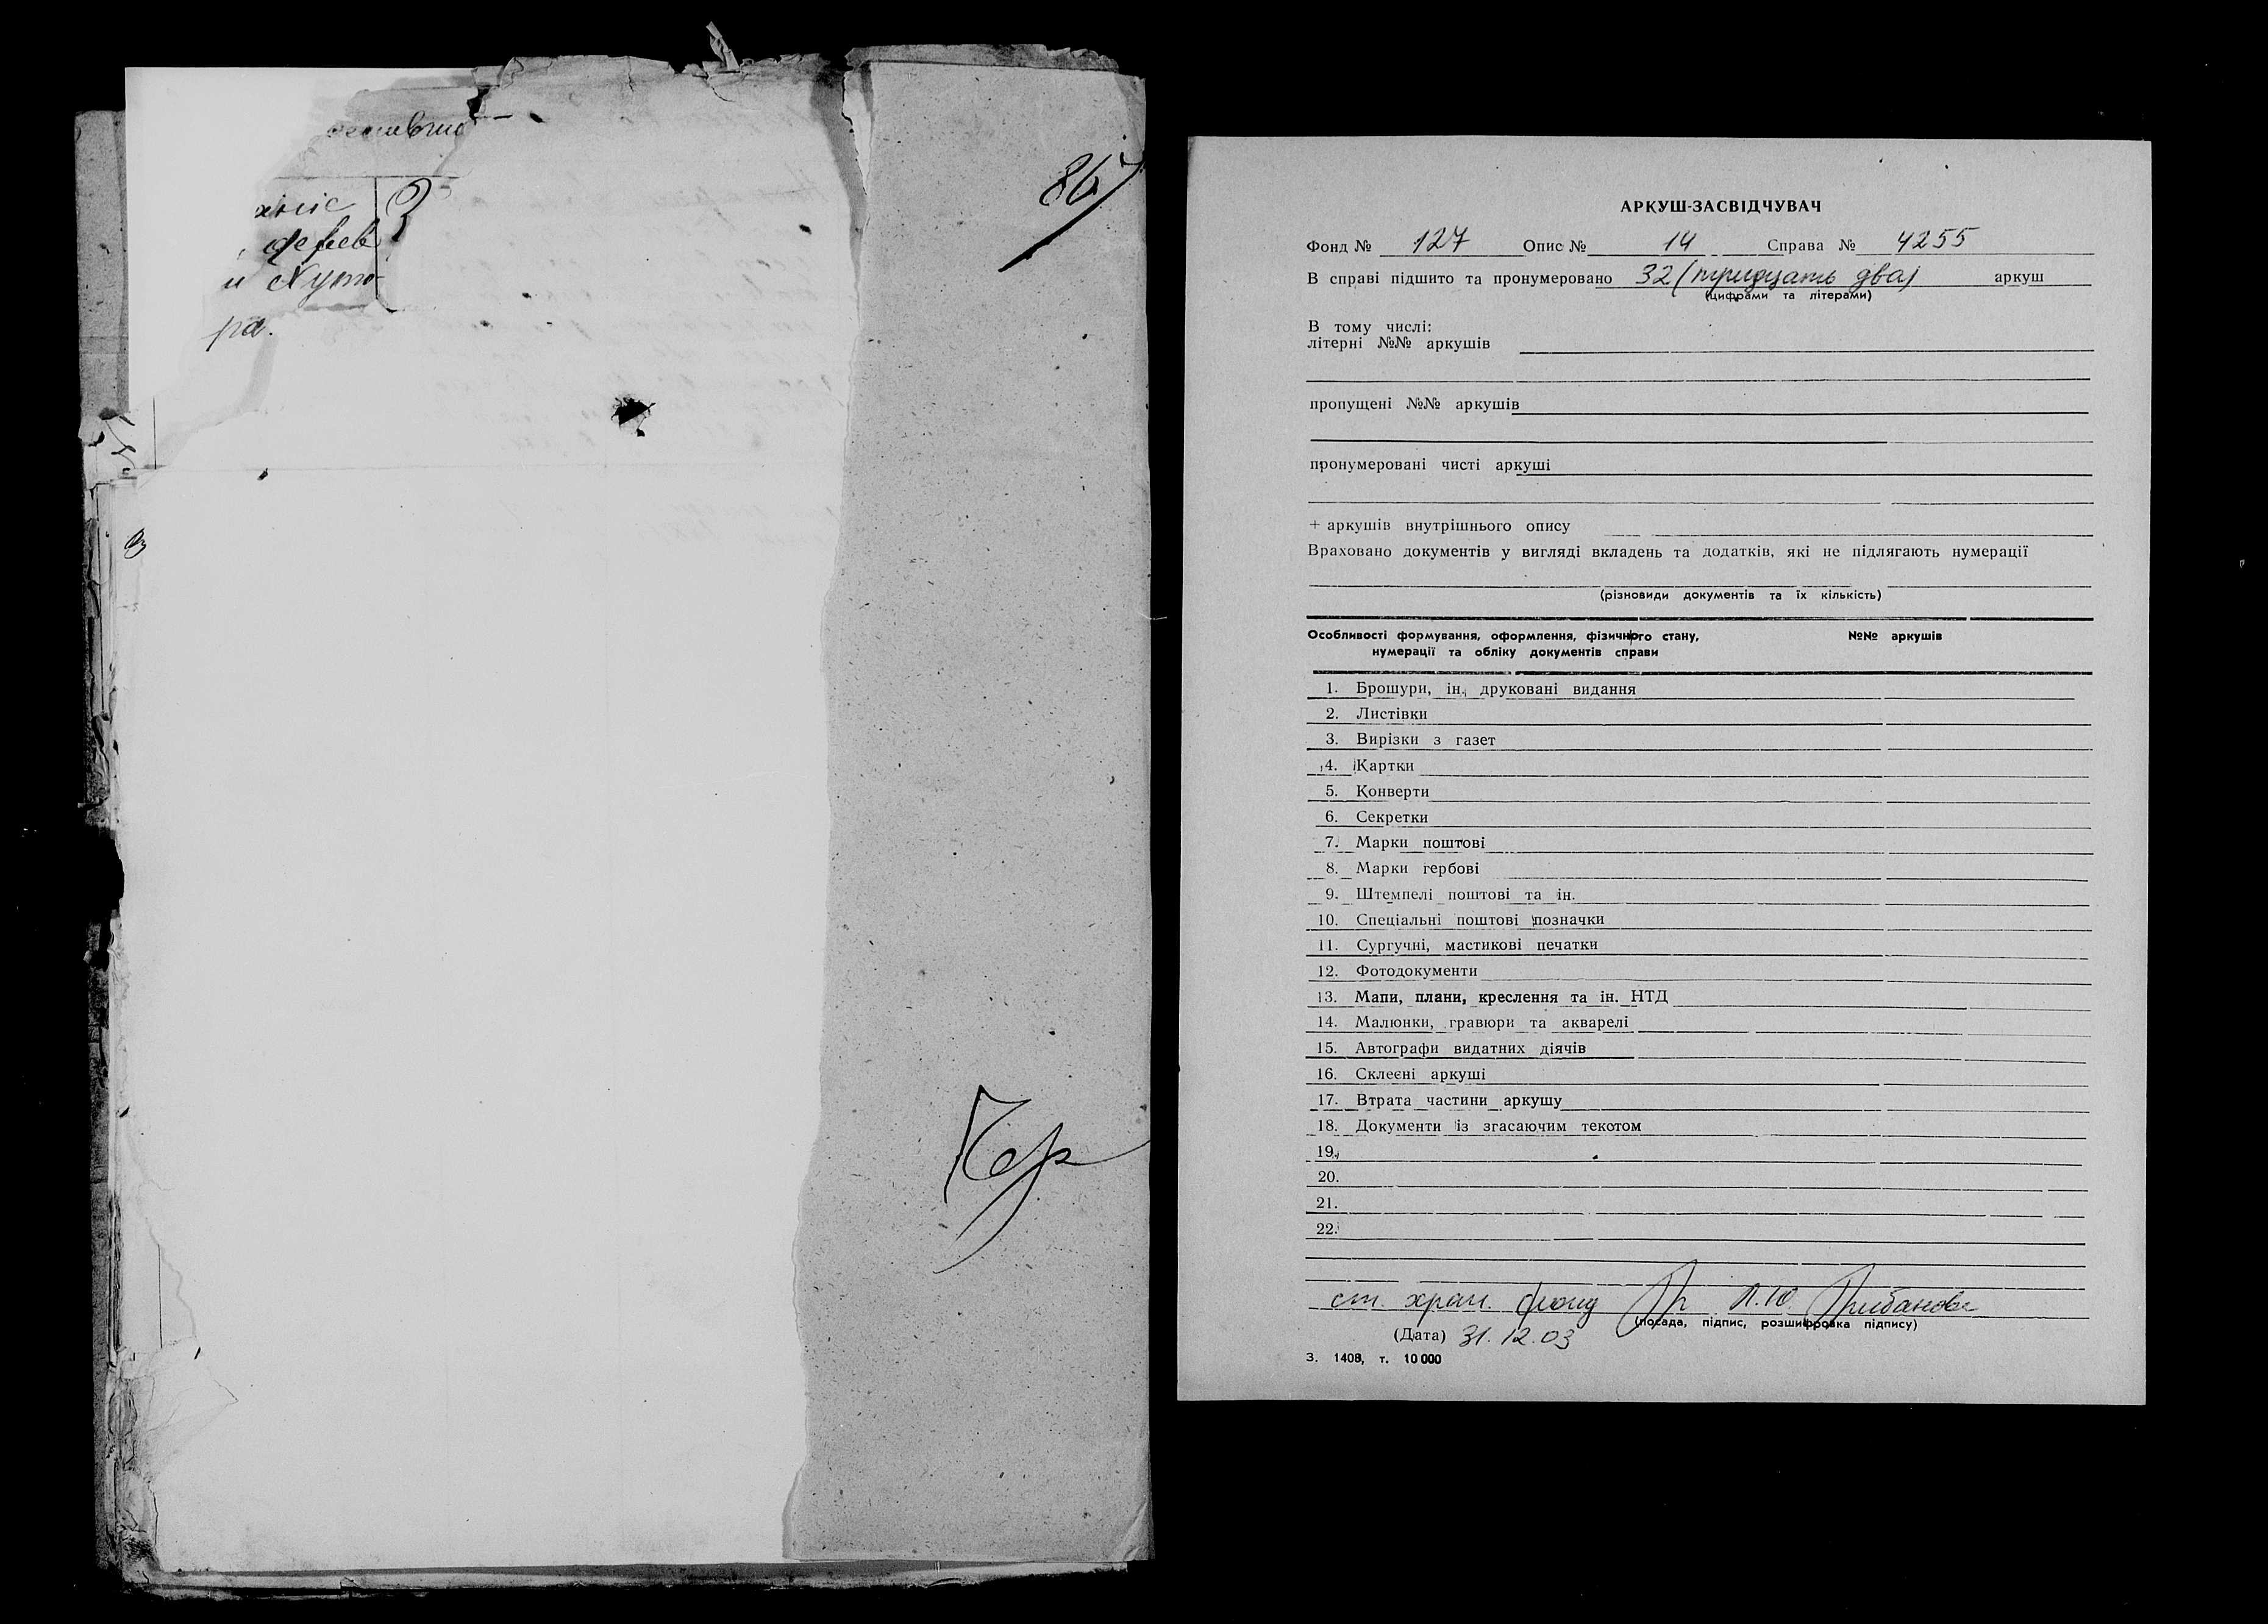 и Хуто-
ра.
867
АРКУШ-ЗАСВІДЧУВАЧ
Фонд № 127 Опис № 14 Справа № 4255
В справі підшито та пронумеровано 32 (тридцать два) аркуш
(цифрами та літерами)
В тому числі:
літерні №№ аркушів
пропущені №№ аркушів
пронумеровані чисті аркуші
+ аркушів внутрішнього опису
Враховано документів у вигляді вкладень та додатків, які не підлягають нумерації
(різновиди документів та їх кількість)
Особливості формування, оформлення, фізичного стану, №№ аркушів
нумерації та обліку документів справи
1. Брошури, ін. друковані видання
2. Листівки
3. Вирізки з газет
4. Картки
5. Конверти
6. Секретки
7. Марки поштові
8. Марки гербові
9. Штемпелі поштові та ін.
10. Спеціальні поштові позначки
11. Сургучні, мастикові печатки
12. Фотодокументи
13. Мапи, плани, креслення та ін. НТД
14. Малюнки, гравюри та акварелі
15. Автографи видатних діячів
16. Склеєні аркуші
17. Втрата частини аркушу
18. Документи із згасаючим текстом
19.
20.
21.
22.
ст. хран. фонд Л.Ю.
(посада, підпис, розшифровка підпису)
(Дата) 31.12.03
З. 1408, т. 10 000